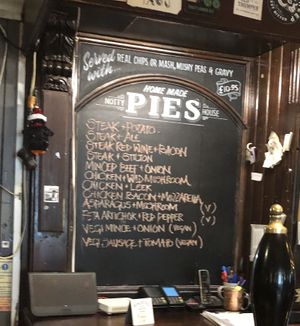 Served with REAL CHIPS OR MASH, MUSHY PEAS & GRAVY
£10.95
HOME MADE
NOTTY PIES HOUSE
STEAK + POTATO
STEAK + ALE
STEAK RED WINE + BACON
STEAK + STILTON
MINCED BEEF + ONION
CHICKEN + WILD MUSHROOM
CHICKEN + LEEK
CHICKEN BACON + MOZZARELLA
ASPARAGUS + MUSHROOM (V)
FETA ARTICHOK + RED PEPPER (V)
VEGI MINCE + ONION (VEGAN)
VEGI SAUSAGE + TOMATO (VEGAN)